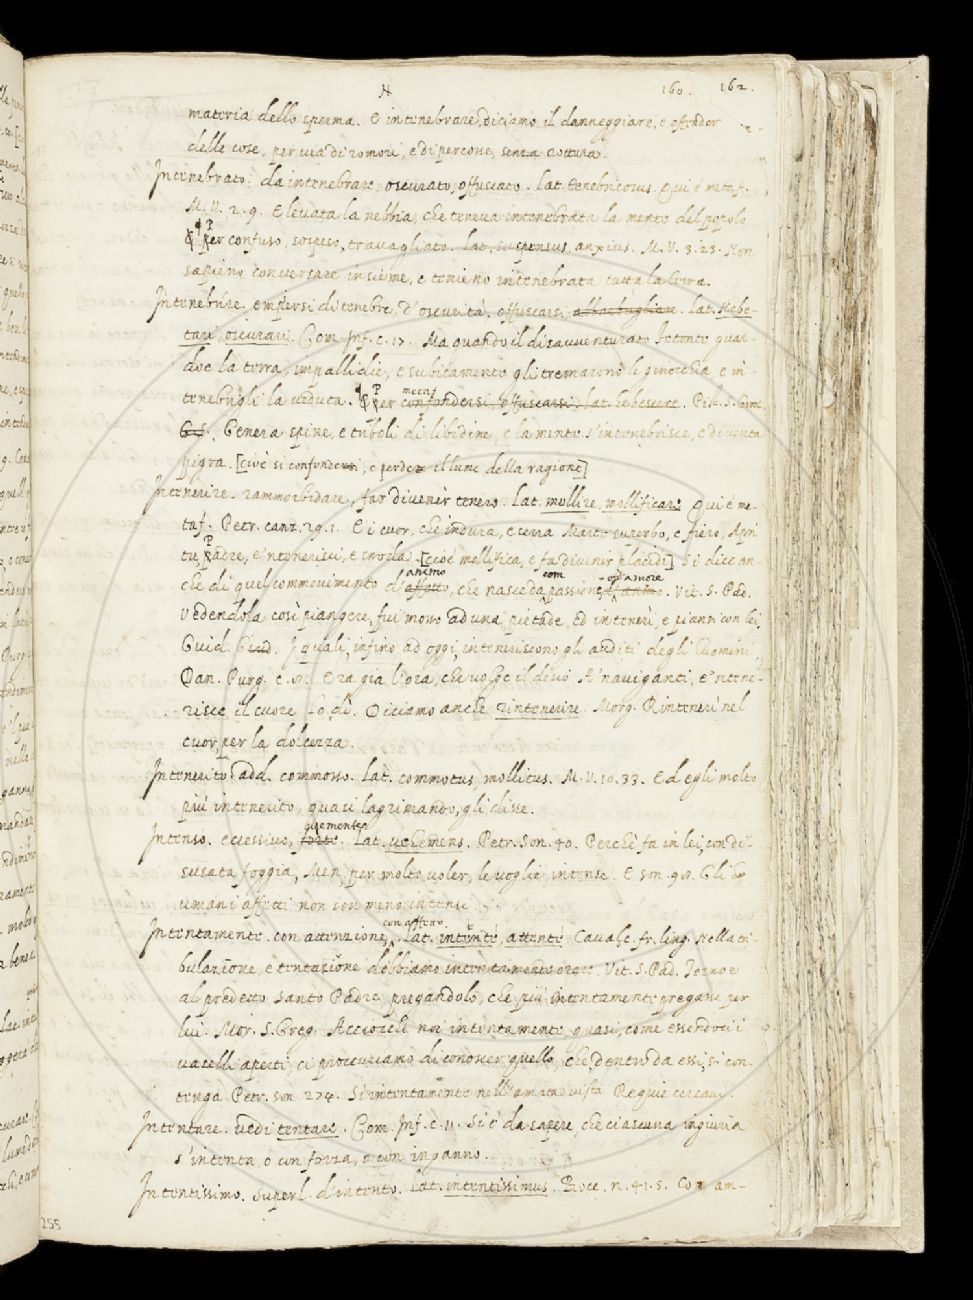 N 160. 162.
materia dello sperma. E intenebrare, diciamo il danneggiare, e offender
delle cose, per via di romori, e di percosse, senza rottura.
Intenebrato: da intenebrare. oscurato, offuscato. Lat. tenebricosus. Qui è metaf.
M. V. 2. 9. E levata la nebbia, che teneva intenebrata la mente del popolo
¶ Per confuso, sospeso, travagliato. Lat. suspensus, anxius. M. V. 3. 23. Non
sapieno conversare insieme, e tenieno intenebrata tutta la terra.
Intenebrire. empiersi di tenebre, d'oscurità. offuscarsi abbarbagliare. Lat. Hebe-
tari, oscurari. Com. Inf. c. 17. Ma quando il disavventurato Fetonte guar-
doe la terra, impallidìe, e subitamente gli tremarono le ginocchia e in-
tenebrìgli la veduta. ¶ Per confondersi, offuscarsi, Lat. hebescere.
Genera spine, e triboli di libidine, e la mente s'intenebrisce, e diventa
pigra. [cioè si confonde, e perde il lume della ragione]
Intenerire. rammorbidare, far divenir tenero. Lat. mollire, mollificare. Qui è me-
taf. Petr. canz. 29. 1. E i cuor, che indura, e serra Marte superbo, e fiero, Apri
tu, Padre, e 'ntenerisci, e snoda. [cioè mollifica, e fa divenir placidi] Si dice an-
animo com od amore
che di quel commovimento d'affetto, che nasce da passione. Vit. S. Pad.
Vedendola così piangere, fui mosso ad una pietade, ed intenerì, e piansi con lei.
Guid. Giud. I quali, infino ad oggi, inteneriscono gli auditi degli huomini.
Dan. Purg. c. 8. Era già l'ora, che volge il disio A' naviganti, e 'ntene-
risce il cuore Lo dì. Diciamo anche rintenerire. Morg. Rintenerì nel
cuor, per la dolcezza.
Intenerito add. commosso. Lat. commotus, mollitus. M. V. 10. 33. Ed egli molto
più intenerito, quasi lagrimando, gli disse.
Intenso. eccessivo, forte. Lat. vehemens. Petr. Son. 40. Perchè fa in lei, con di-
susata foggia, Men, per molto voler, le voglie intense. E son. 98. Gli
umani affetti non son meno intensi.
con affetto
Intentamente. con attenzione, Lat. intentè, attentè Cavalc. fr. ling. Nella tri-
bulazione, e tentazione dobbiamo intentamente orare. Vit. S. Pad. Tornoe
al predetto Santo Padre, pregandolo, che più intentamente pregasse per
lui. Mor. S. Greg. Acciocchè noi intentamente quasi, come essendoci i
vaselli aperti, ci procuriamo di conoscer quello, che dentro da essi, si con-
tenga Petr. son. 274. Sì intentamente nell'amata vista Requie cercavi.
Intentare. vedi tentare. Com. Inf. c. 11. Si è da sapere, che ciascuna ingiuria
s'intenta o con forza, o con inganno.
Intentissimo. Superl. d'intento. Lat. intentissimus. Bocc. n. 41. 5. Con am-
255